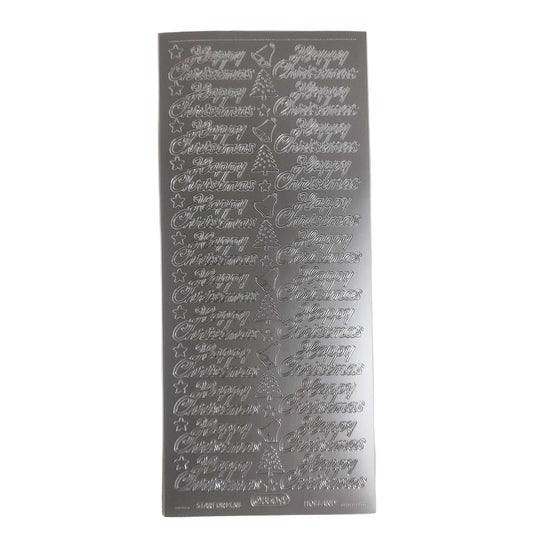 Happy Happy
Christmas Christmas
Happy Happy
Christmas Christmas
Happy Happy
Christmas Christmas
Happy Happy
Christmas Christmas
Happy Happy
Christmas Christmas
Happy Happy
Christmas Christmas
Happy Happy
Christmas Christmas
Happy Happy
Christmas Christmas
Happy Happy
Christmas Christmas
Happy Happy
Christmas Christmas
Happy Happy
Christmas Christmas
Happy Happy
Christmas Christmas
HOLLAND